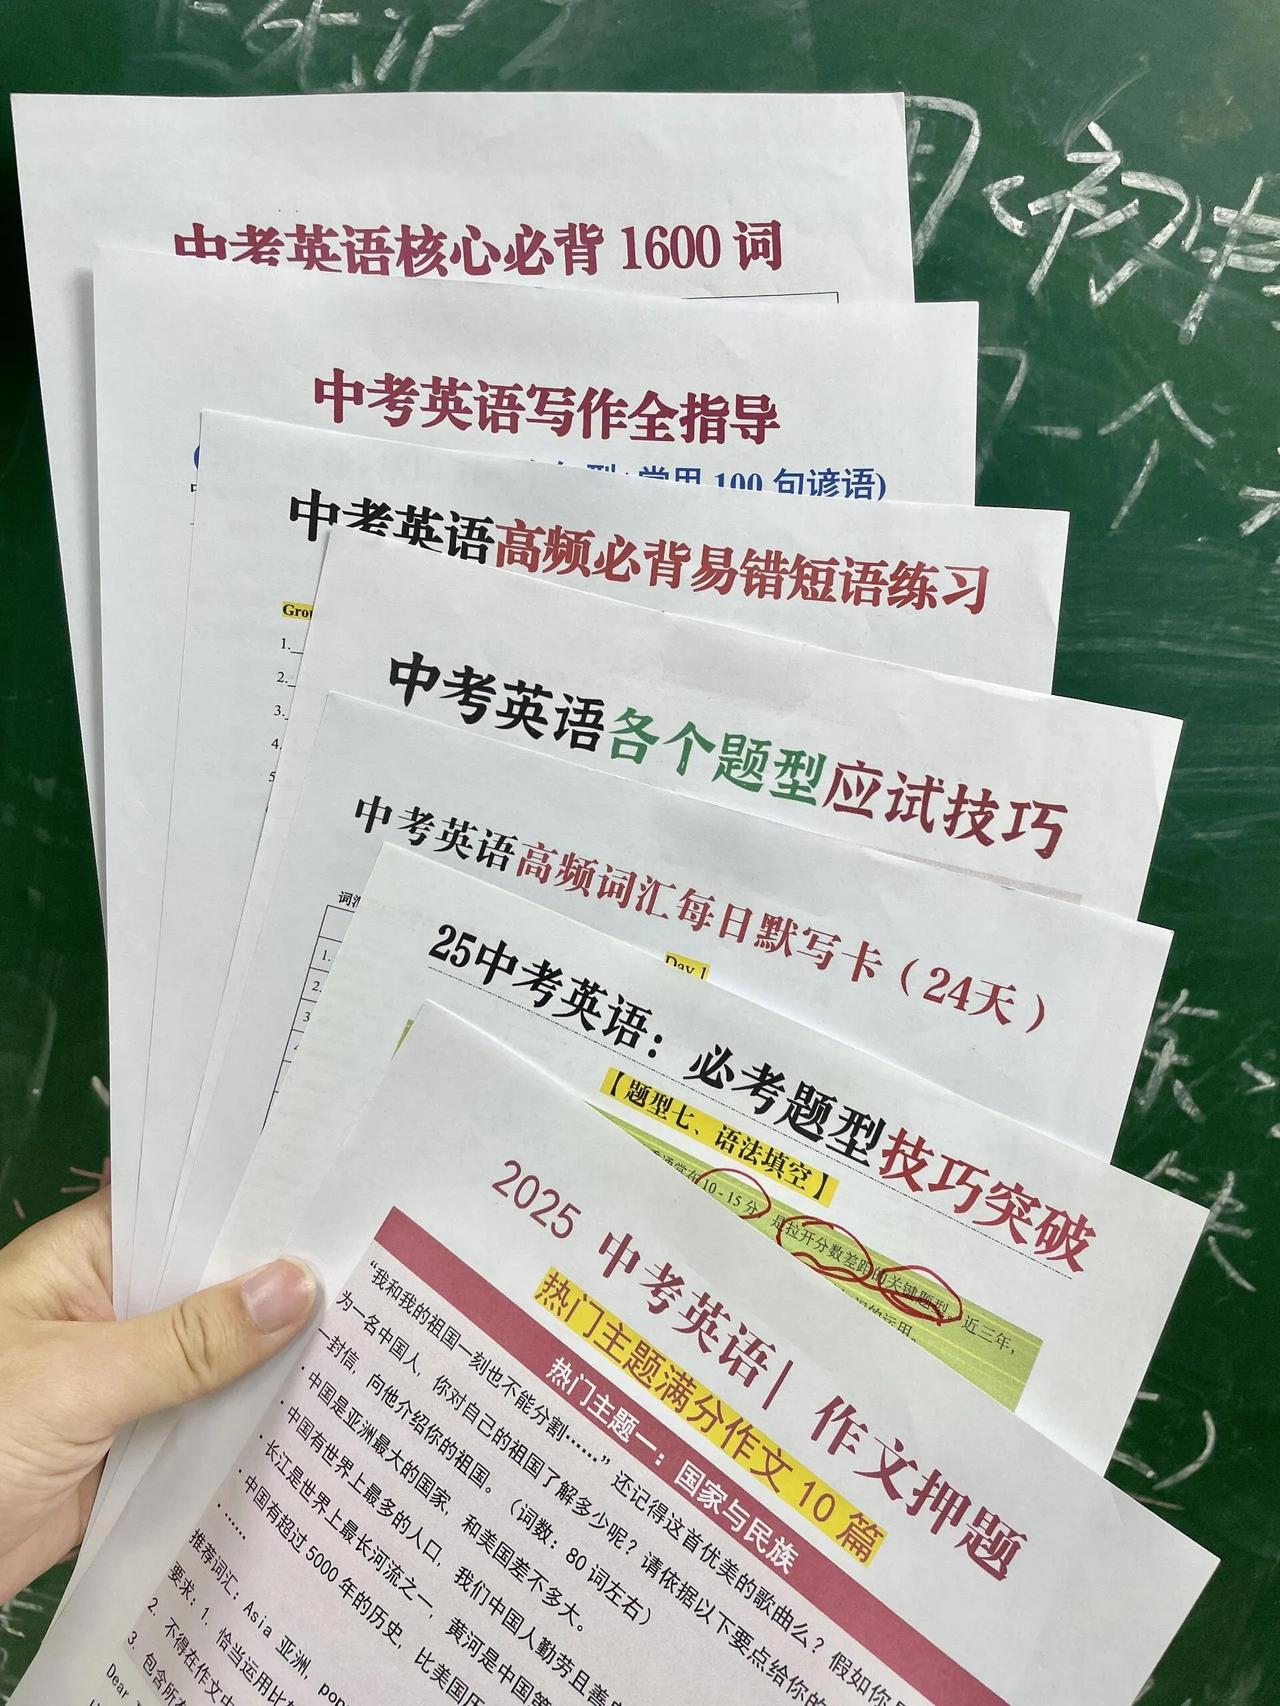 中考英语核心必背1600词
中考英语写作全指导
常用100句谚语)
中考英语高频必背易错短语练习
1.
2.
3.
4.
5
中考英语各个题型应试技巧
中考英语高频词汇每日默写卡（24天）
Day 1
1.
2.
3
25中考英语：必考题型技巧突破
【题型七、语法填空】
10-15分，是拉开分数差距的关键题型，近三年，
的运用。
2025 中考英语| 作文押题
热门主题满分作文10篇
热门主题一：国家与民族
“我和我的祖国一刻也不能分割……”还记得这首优美的歌曲么？假如你
为一名中国人，你对自己的祖国了解多少呢？请依据以下要点给你的
一封信，向他介绍你的祖国。（词数：80词左右）
·中国是亚洲最大的国家，和美国差不多大。
·中国有世界上最多的人口，我们中国人勤劳且善
·长江是世界上最长河流之一，黄河是中国第
·中国有超过5000年的历史，比美国历
……
推荐词汇：Asia 亚洲，pop
要求：1. 恰当运用比
2. 不得在作文中
3. 包含所有
Dear